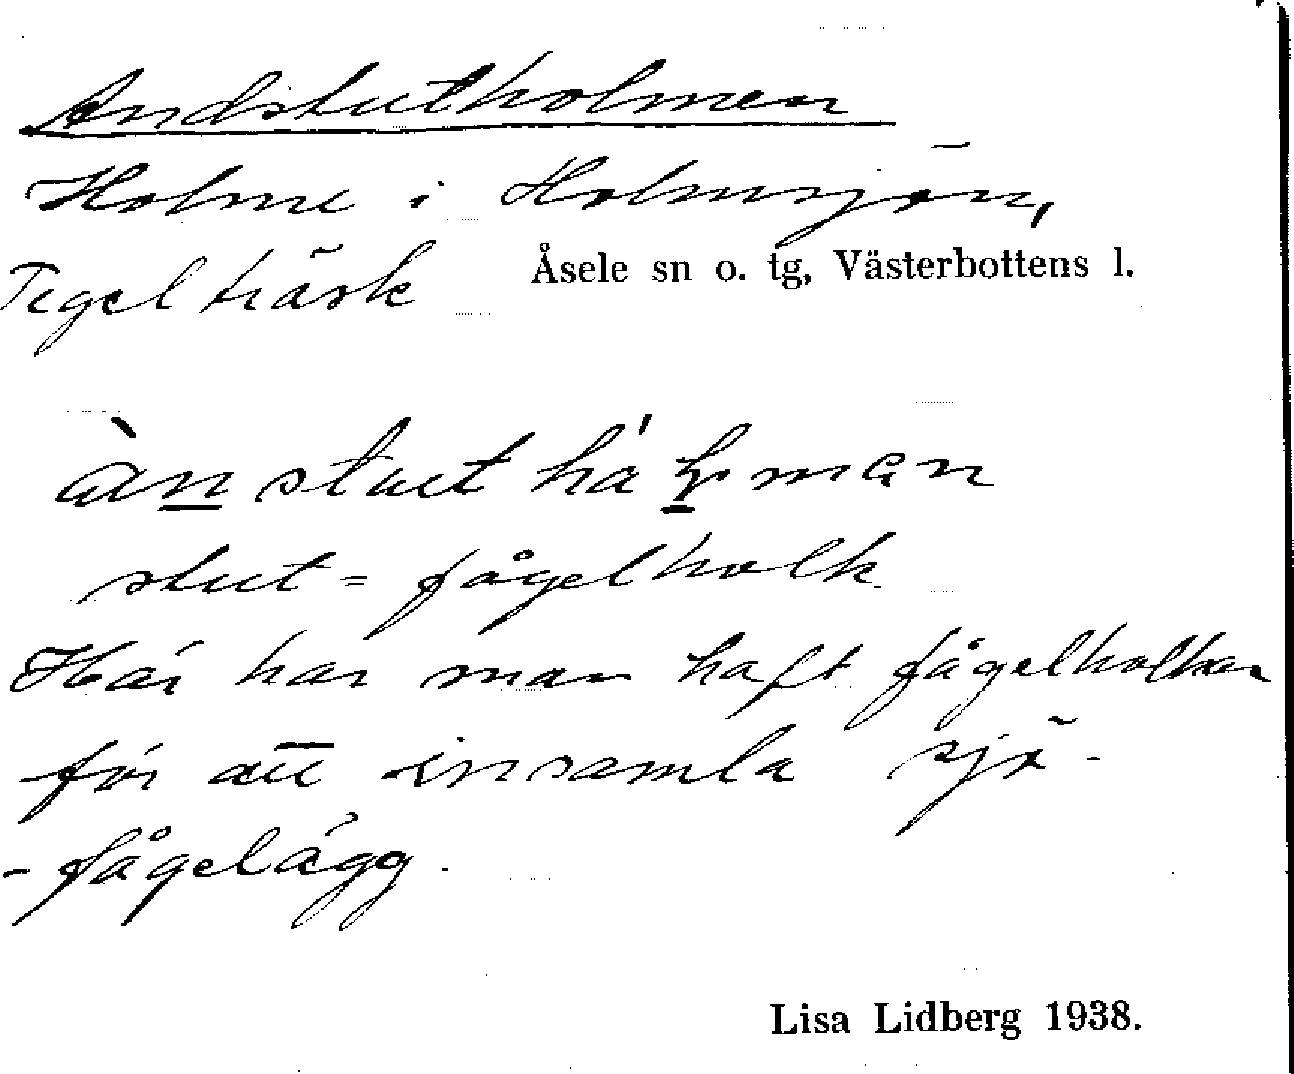 Andstutholmen
Holme i Holmsjön,
Tegelträsk Åsele sn o. tg, Västerbottens l.
stut = fågelholk
Här har man haft fågelholkar
för att insamla sjö-
-fågelägg.
Lisa Lidberg 1938.